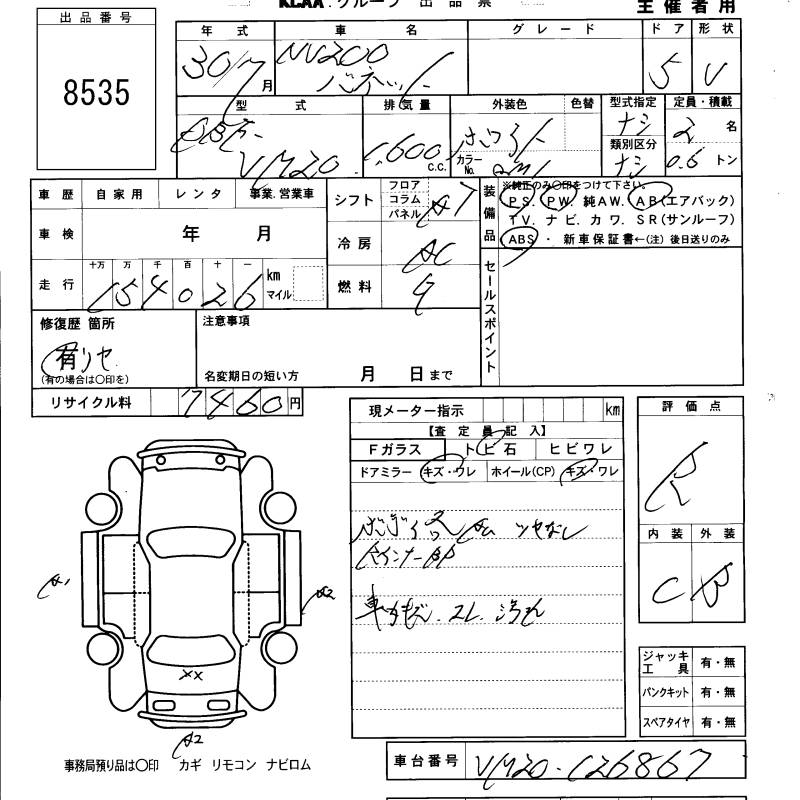 KCAA.グループ 出 品 票
主催者用
出品番号
8535
年式 車名 グレード ドア 形状
30/7月 NV200 5 V
バネット
型式 排気量 外装色 色替 型式指定 定員・積載
ナシ 2名
VM20 1,600 c.c. カラーNo. 類別区分
ナシ 0.6トン
車歴 自家用 レンタ 事業.営業車
シフト フロア コラム パネル AT
車検 年 月
冷房 AC
走行 十万 万 千 百 十 一
154026 km マイル
燃料
装備品
※純正のみ〇印をつけて下さい。
PS. PW. 純AW. AB(エアバック)
TV. ナビ. カワ. SR(サンルーフ)
ABS・ 新車保証書←(注)後日送りのみ
セールスポイント
修復歴 箇所
有
(有の場合は〇印を)
注意事項
名変期日の短い方 月 日まで
リサイクル料 7460円
現メーター指示 km
【査定員記入】
Fガラス トビ石 ヒビワレ
ドアミラー キズ・ワレ ホイール(CP) キズ・ワレ
評価点
R
内装 外装
C B
A1
A2
XX
A2
ジャッキ工具 有・無
パンクキット 有・無
スペアタイヤ 有・無
事務局預り品は〇印 カギ リモコン ナビロム
車台番号 VM20-126867